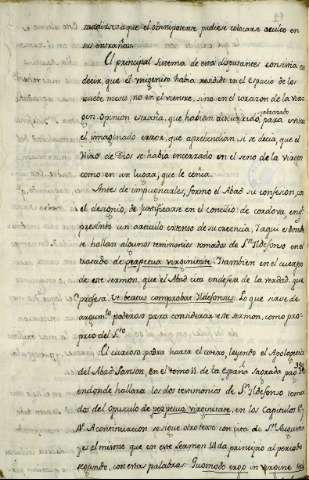 que el omnipotente pudiese colocarse dentro en
sus entrañas.
El principal sistema de estos disputantes consistia en
decir, que el unigenito habia residido en el espacio de los
nueve meses, no en el vientre, sino en el corazon de la Vir
gen. Opinion estraña, que habian para evitar
el imaginado error, que aprehendian si se decia, que el
Hixo de Dios se habia encerrado en el seno de la Virgen
como en un lugar, que le ceñia.
Antes de impugnarles, formó el Abad su confesion, con
el designio, de justificarse en el concilio de cordova, en q.
presentó un articulo extenso de su creencia, y aqui es donde
se hallan algunos testimonios tomados de S.n Ildefonso en el
tratado de perpetua virginitate. Tambien en el cuerpo
de este sermon, que el Abad cita en defensa de la verdad, que
profesa. Ut beatus comprobat Ildefonsus. Lo que sirve de
argum.to poderoso para considerar este sermon, como pro
prio del S.to
El curioso podra hacer el cotexo, leyendo el Apologetico
del Abad Sanson, en el tomo 11. de la España Sagrada pag.
en donde hallara los dos testimonios de S.n Ildefonso toma
dos del opusculo de perpetua virginitate, en los Capitulos
A continuacion se sigue otro texto con pretexto de S.n Agustin
y es el mismo que en este Sermon da principio al periodo
segundo, con estas palabras: Quomodo ergo in virgine